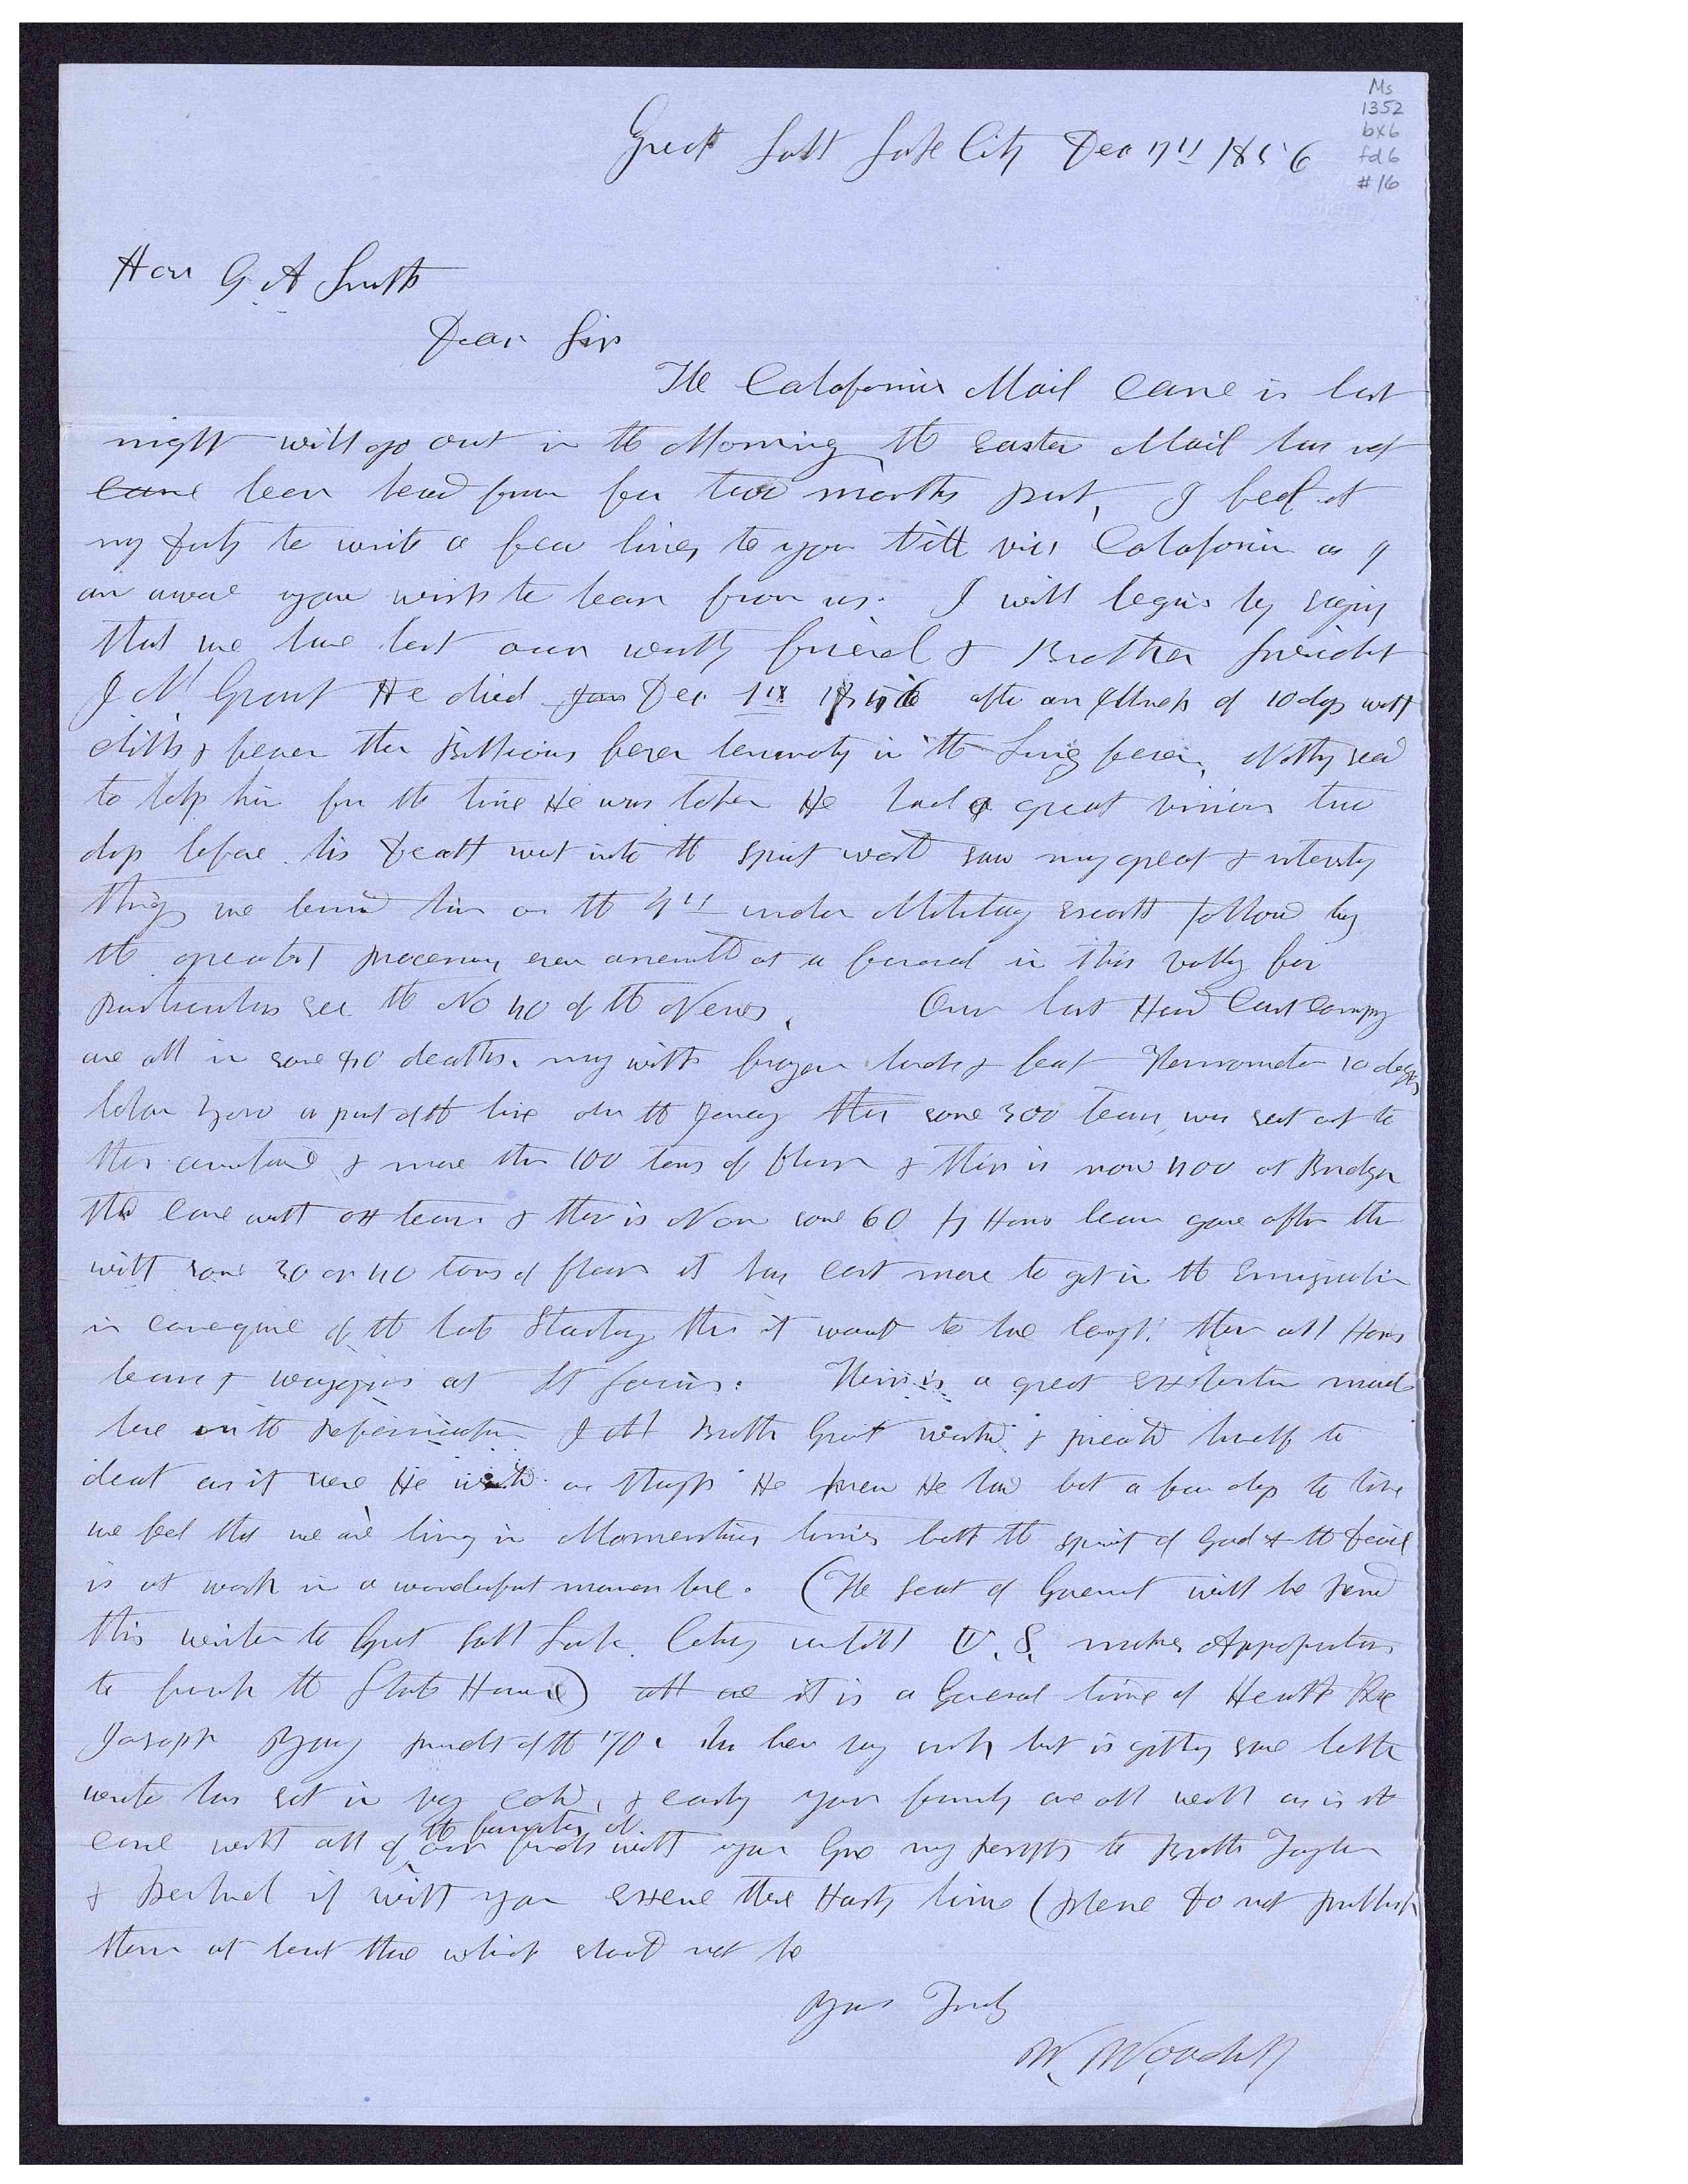 Ms
1352
bx6
fd6
#16
Great Salt Lake City Dec 17th 1856
Hon G. A Smith
Dear Sir
The Calafornia Mail Came in last
night will go out in the Morning the Easter Mail has not
came been head from for two months past, I feel it
my duty to write a few lines to you via Calafornia as I
am aware you wish to hear from us. I will begin by saying
that we have lost our worthy friend & Brother President
J M Grant He died Jan Dec 1st 1856 after an illness of 10 days with
chills & fever then Billious fever terminating in the Lung fever. Nothing
to help him for the time He was taken He had a great vision two
days before his death went into the spirit world saw many great & interesting
things we buried him on the 4th under Military Escort followed by
the greatest procession ever assembled at a funeral in this valley for
particulars see the No 40 of the News. Our last Hand Cart Company
are all in some deaths. many with frozen hands & feet Thermometer 10 degres
below Zero a part of the time on the journey their some 300 teams was sent out to
their assistance & more then 100 tons of flour & their is now 400 at Bridger
that came with ox teams & their is Now some 60 4 Horse teams gone after them
with some 30 or 40 tons of flour it has cost more to get in the Emigration
in consequence of the late Starting then it would to have bought them all Horse
teams & waggons at St Louis. Their is a great Exhertion made
here in the Reformation J M Brother Grant worked & preached himself to
death as it were He worked as though He knew He had but a few days to live
we feel that we are living in Momentous times both the spirit of God & the devil
is at work in a wonderful manner here. (The seat of Government will be
this winter to Great Salt Lake City untill U.S. makes Appropriations
to finish the State House) all are it is a General time of Health
Joseph Young President of the 70s has been very sick but is getting some better
winter has set in very cold, & early your family are all well as is the
case with all of the families of our friends with you Give my respects to Brother Taylor
& Bernhisel if with you excuse these Hasty lines (please do not publish
them at least those which should not be
Yours Truly
W. Woodruff